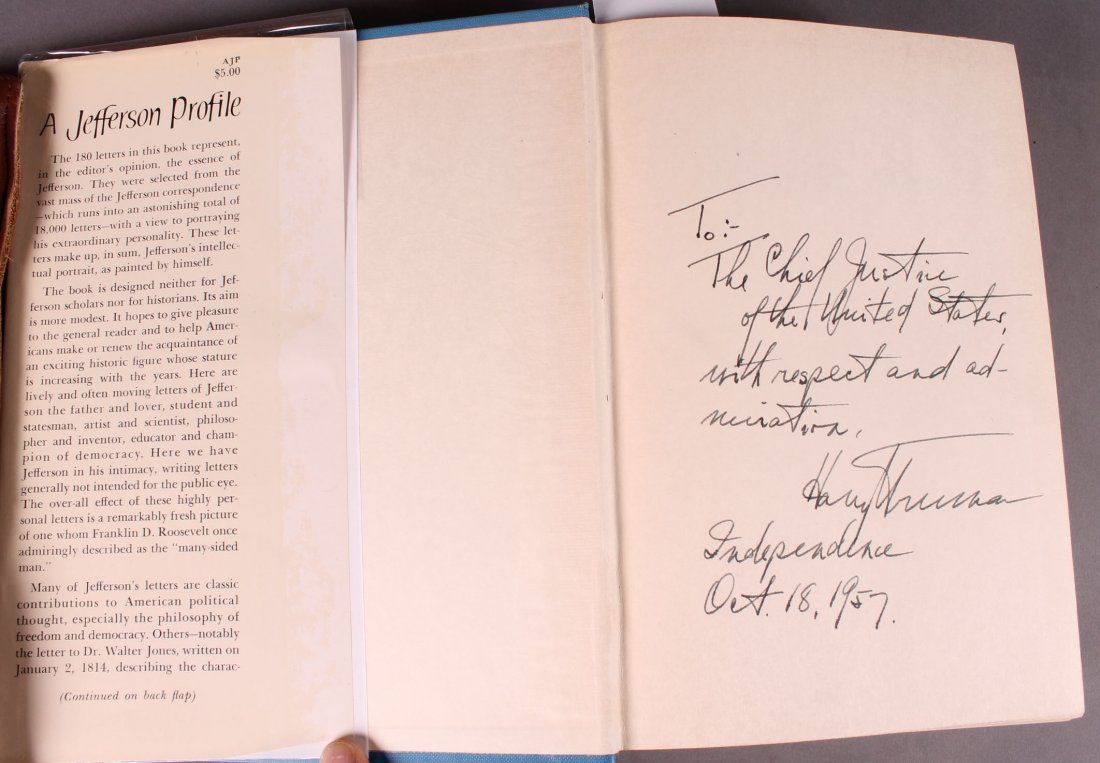 AJP
$5.00
A Jefferson Profile
The 180 letters in this book represent,
in the editor's opinion, the essence of
Jefferson. They were selected from the
vast mass of the Jefferson correspondence
—which runs into an astonishing total of
18,000 letters—with a view to portraying
his extraordinary personality. These let-
ters make up, in sum, Jefferson's intellec-
tual portrait, as painted by himself.
The book is designed neither for Jef-
ferson scholars nor for historians. Its aim
is more modest. It hopes to give pleasure
to the general reader and to help Amer-
icans make or renew the acquaintance of
an exciting historic figure whose stature
is increasing with the years. Here are
lively and often moving letters of Jeffer-
son the father and lover, student and
statesman, artist and scientist, philoso-
pher and inventor, educator and cham-
pion of democracy. Here we have
Jefferson in his intimacy, writing letters
generally not intended for the public eye.
The over-all effect of these highly per-
sonal letters is a remarkably fresh picture
of one whom Franklin D. Roosevelt once
admiringly described as the "many-sided
man."
Many of Jefferson's letters are classic
contributions to American political
thought, especially the philosophy of
freedom and democracy. Others—notably
the letter to Dr. Walter Jones, written on
January 2, 1814, describing the charac-
(Continued on back flap)
To:-
The Chief Justice
of the United States,
with respect and ad-
miration,
Harry Truman
Independence
Oct. 18, 1957.